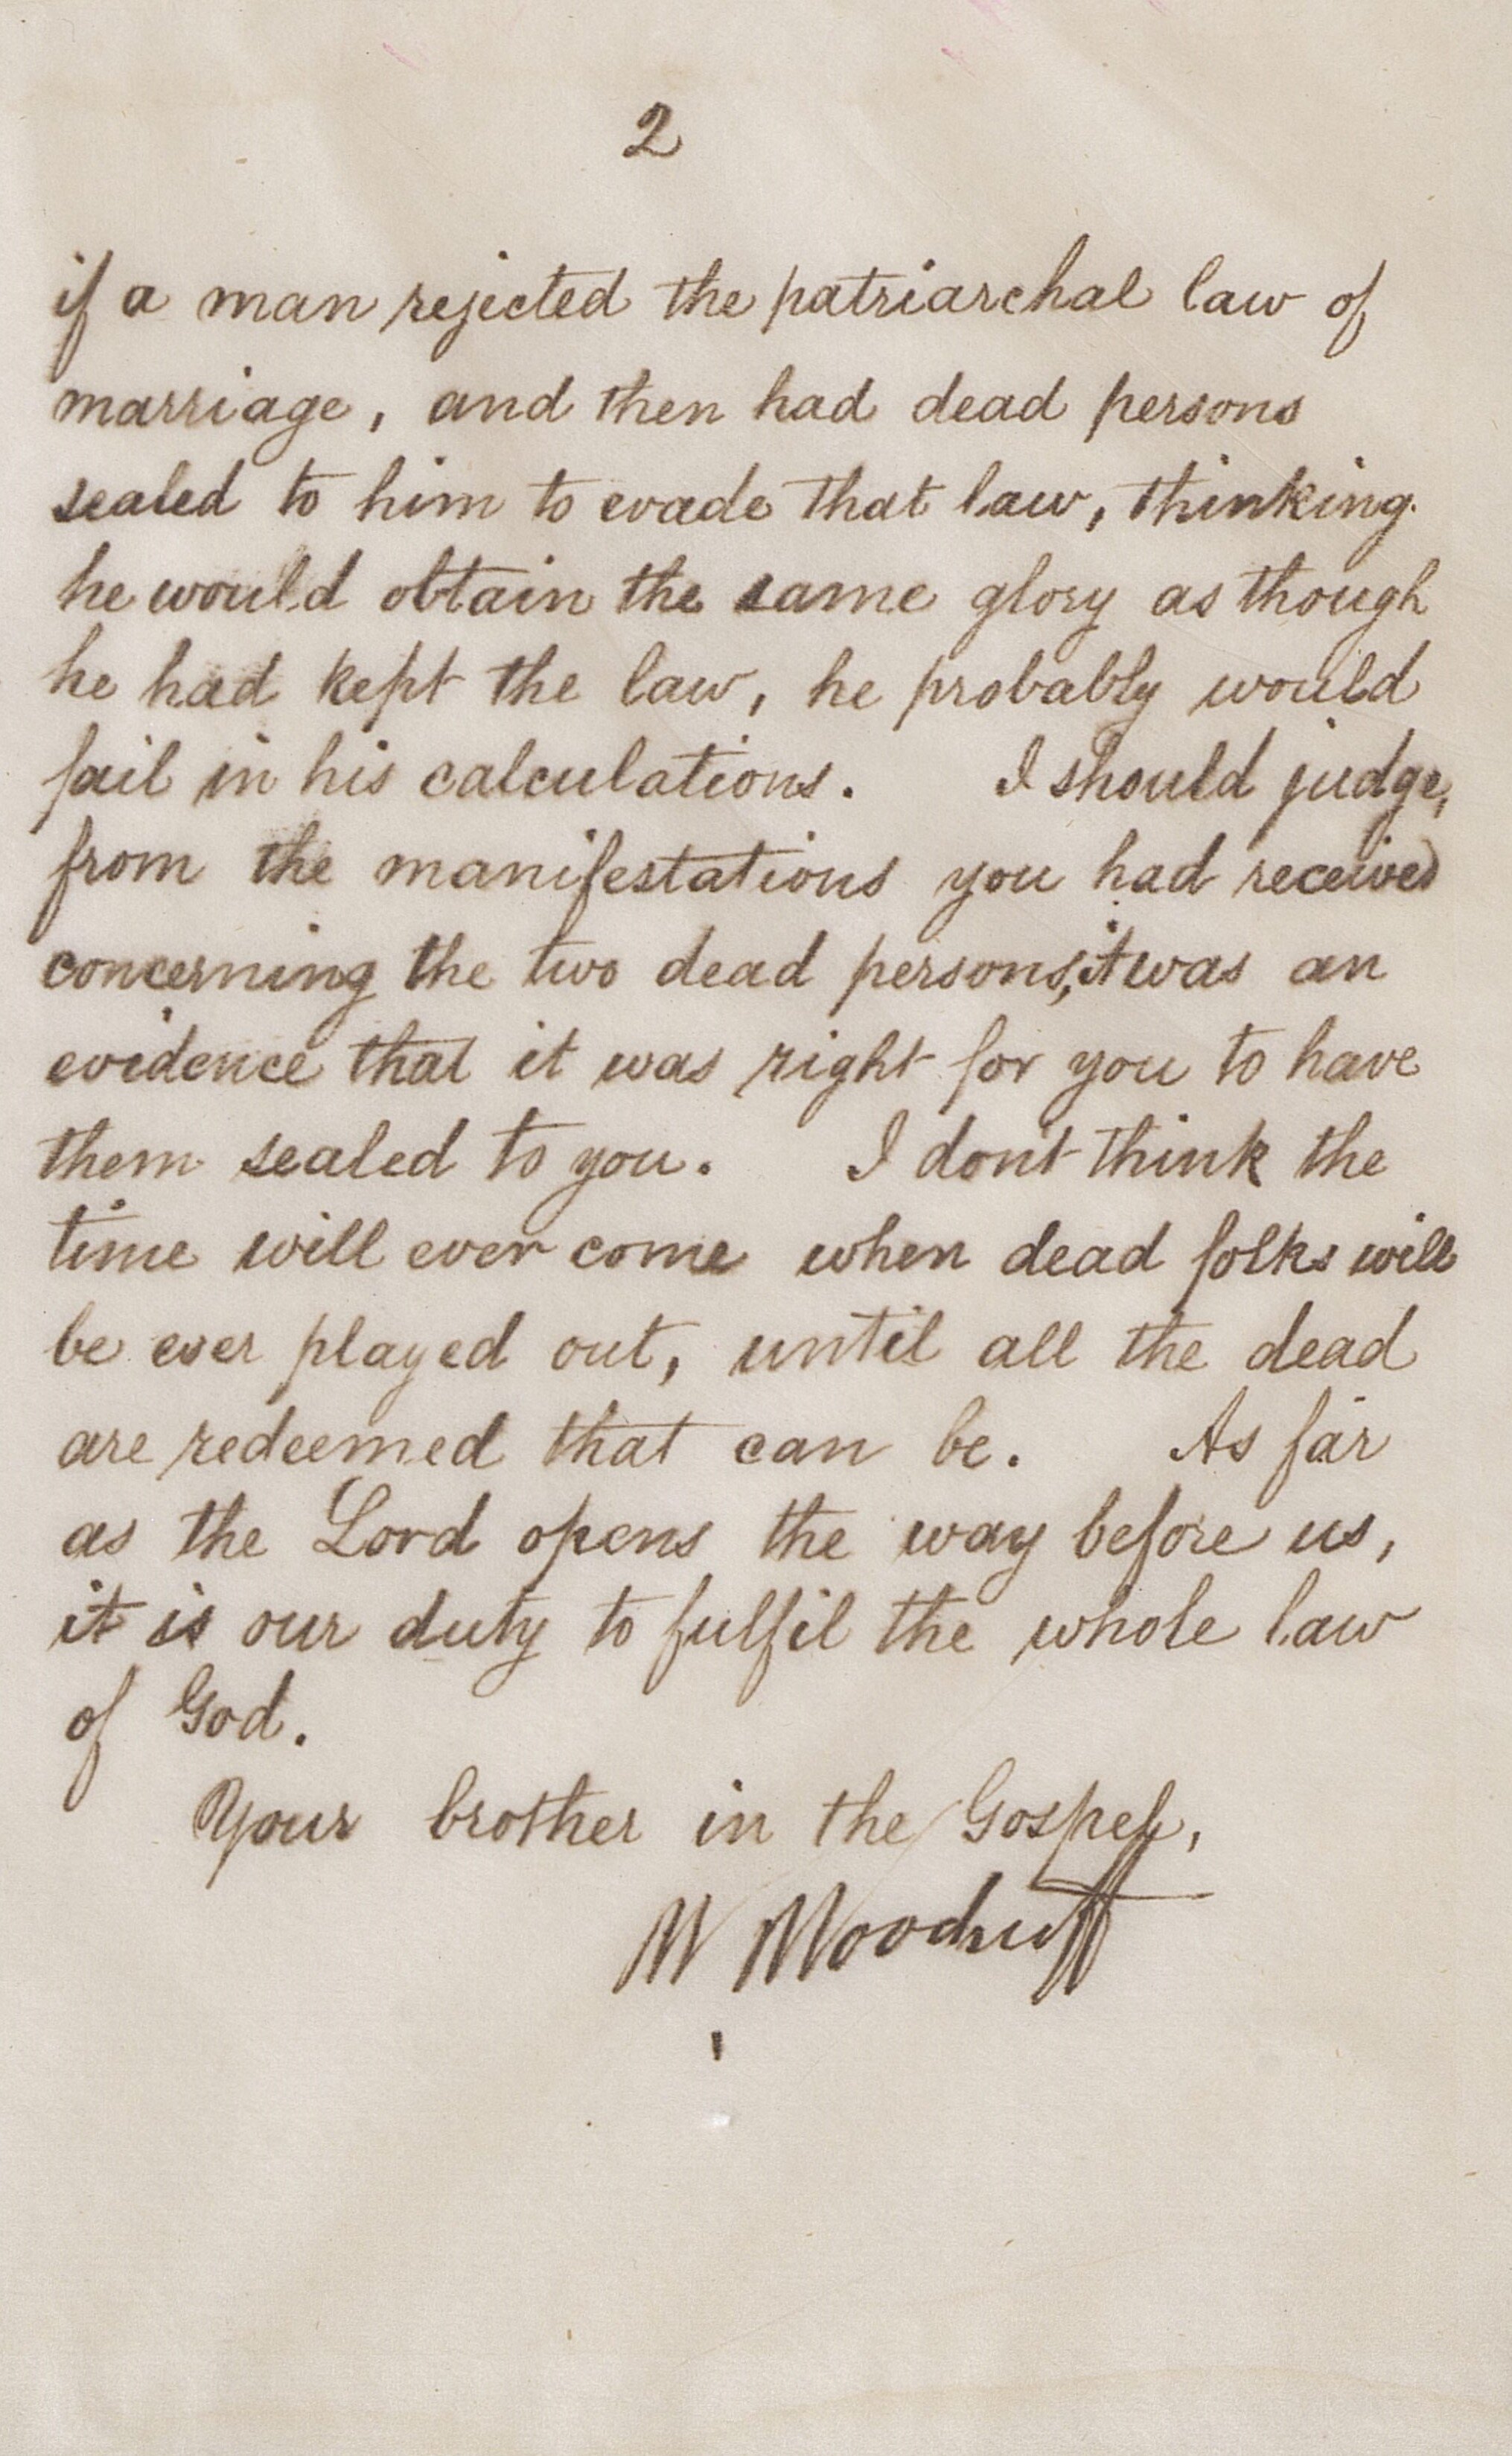 2
if a man rejected the patriarchal law of
marriage, and then had dead persons
sealed to him to evade that law, thinking
he would obtain the same glory as though
he had kept the law, he probably would
fail in his calculations. I should judge,
from the manifestations you had received
concerning the two dead persons, it was an
evidence that it was right for you to have
them sealed to you. I dont think the
time will ever come when dead folks will
be ever played out, until all the dead
are redeemed that can be. As far
as the Lord opens the way before us,
it is our duty to fulfil the whole law
of God.
Your brother in the Gospel,
W Woodruff